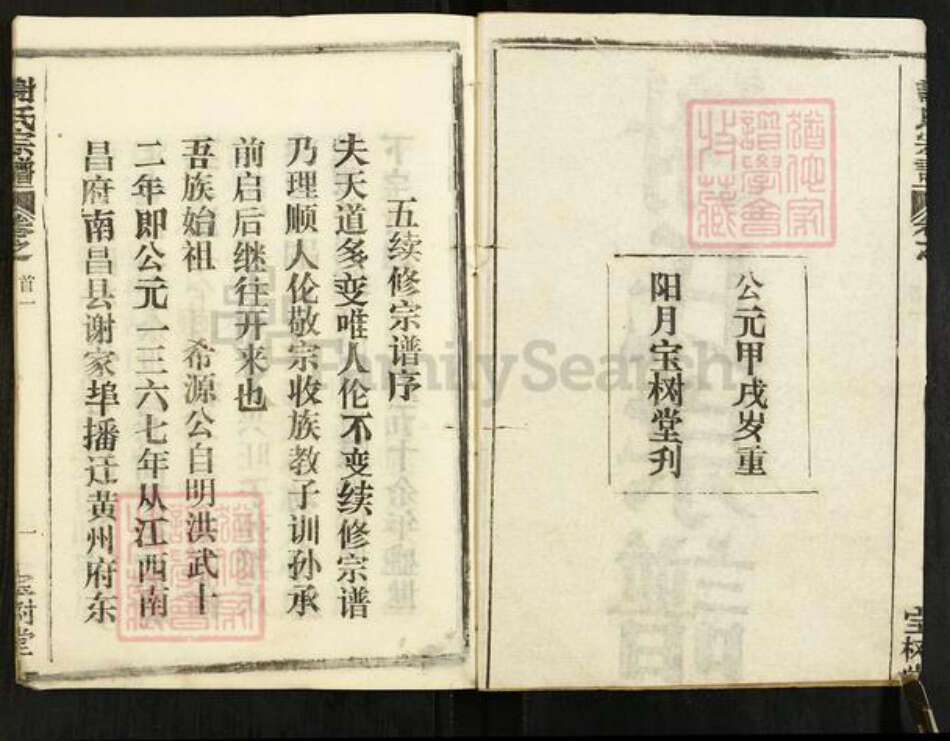 公元甲戌岁重
阳月宝树堂刋
宝树堂
五续修宗谱序
夫天道多变唯人伦不变续修宗谱
乃理顺人伦敬宗收族教子训孙承
前启后继往开来也
吾族始祖 希源公自明洪武十
二年即公元一三六七年从江西南
昌府南昌县谢家埠播迁黄州府东
謝氏宗譜 卷之 首一
一 宝树堂
FamilySearch